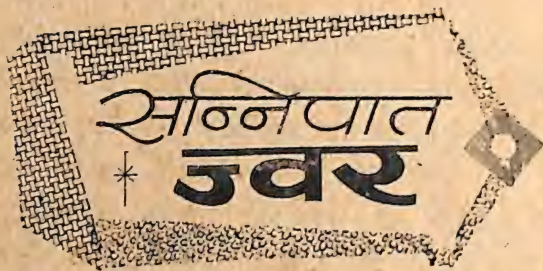 सन्निपात
ज्वर